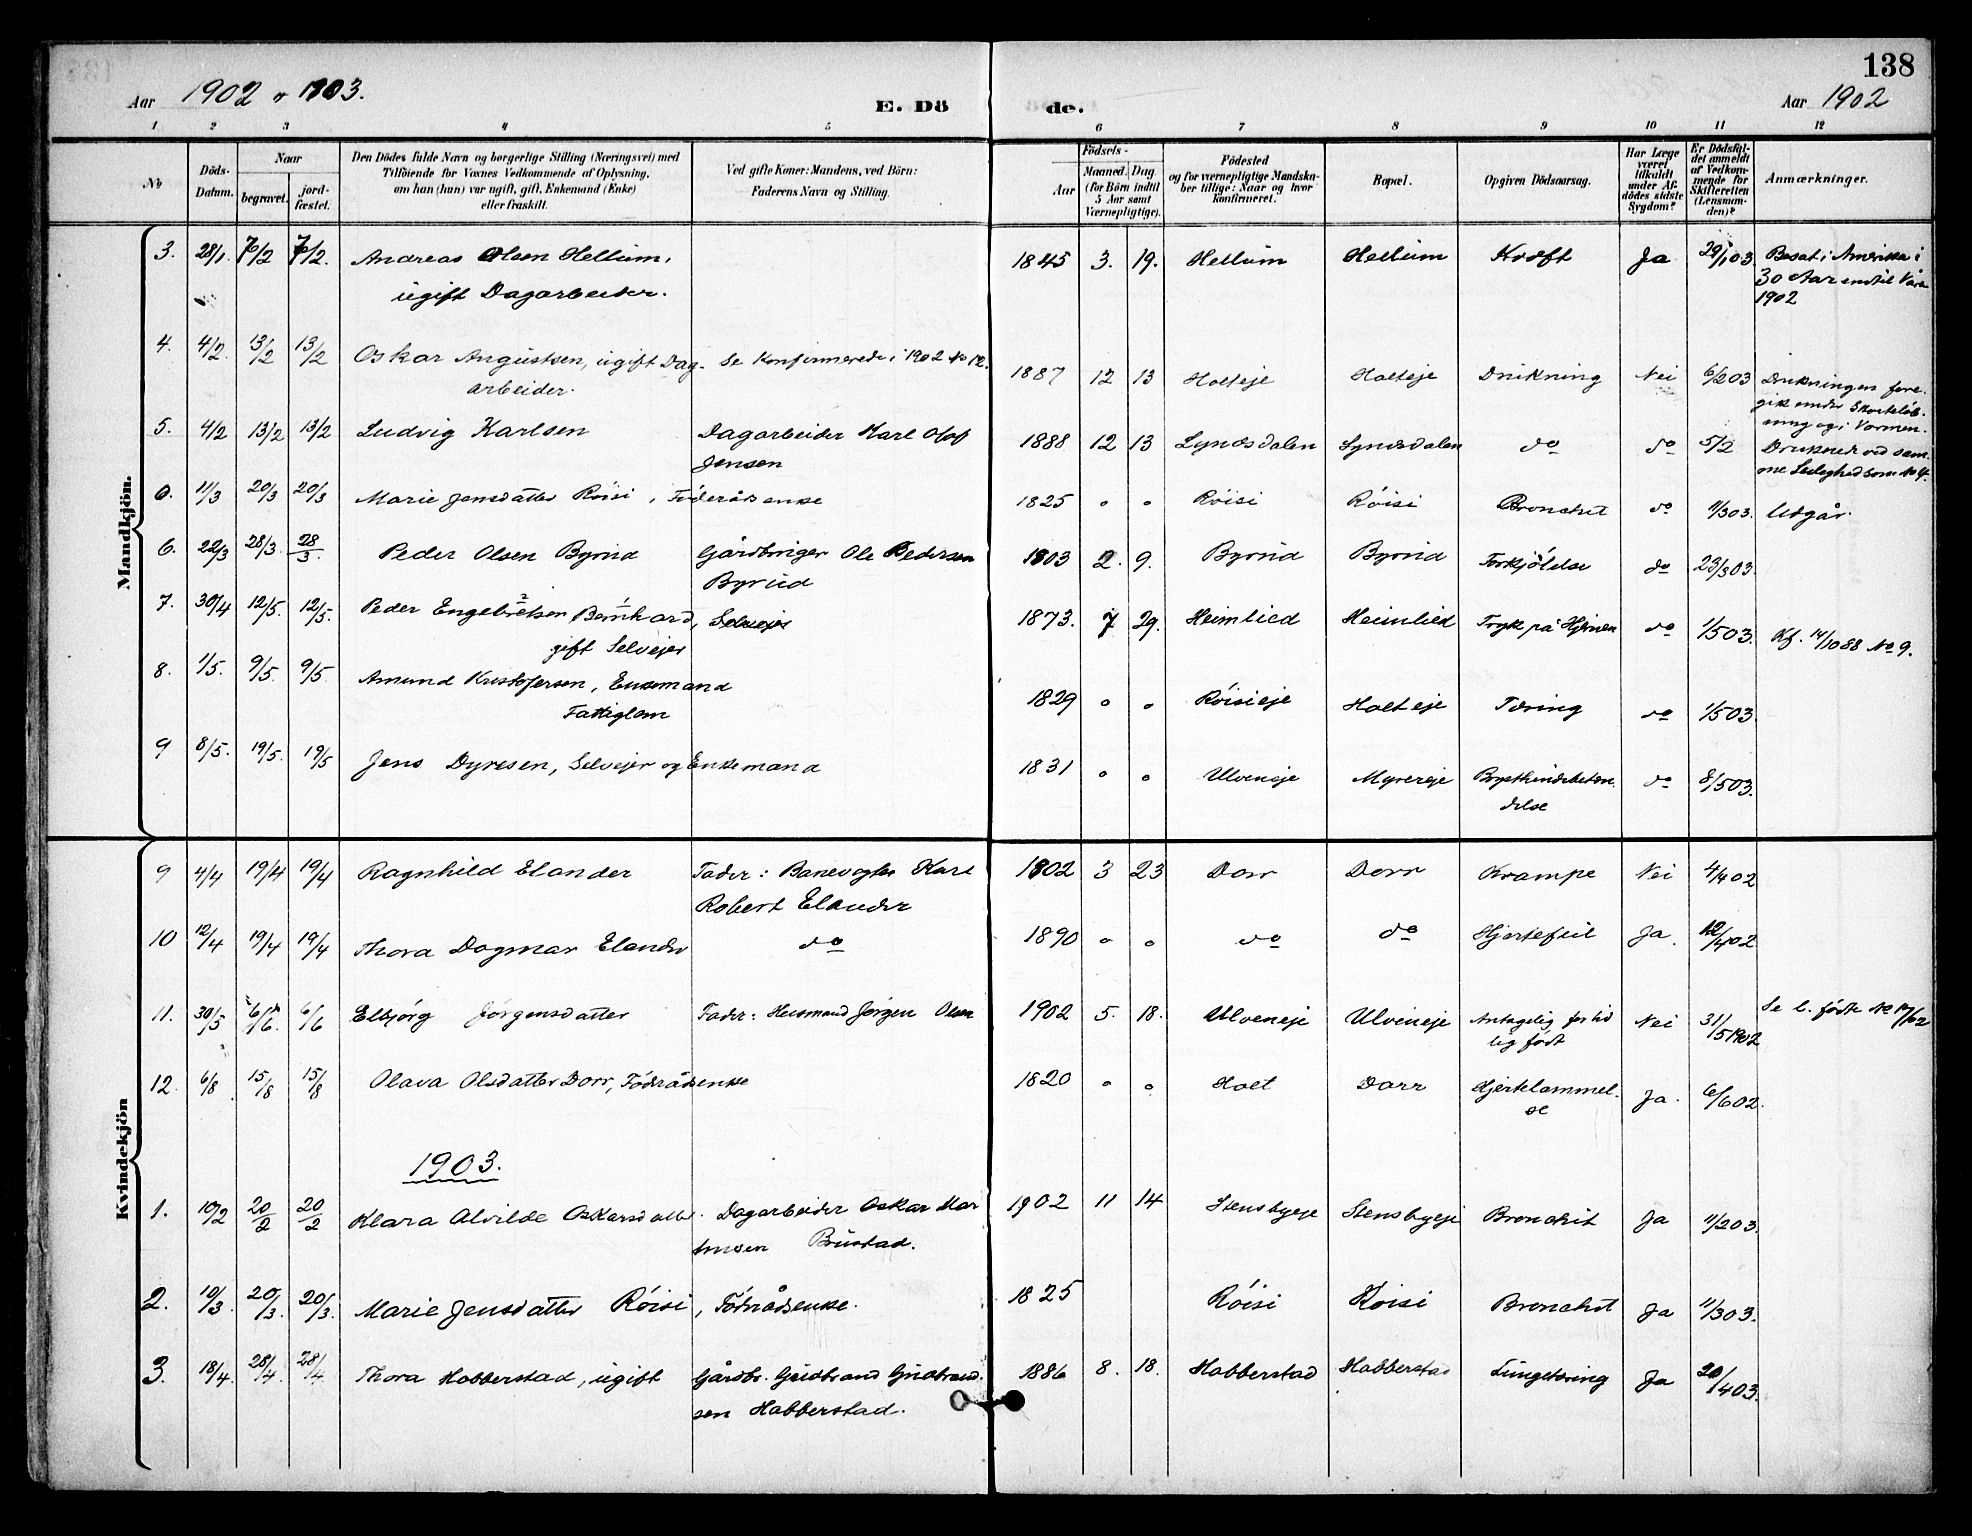 138
Aar 1902 & 1903.
E. Dö
de.
Aar 1902
1 2 3 4 5 6 7 8 9 10 11 12
No
Döds-Datum.
Naar
begravet.
jord-fæstet.
Den Dödes fulde Navn og borgerlige Stilling (Næringsvei) med
Tilföiende for Voxnes Vedkommende af Oplysning,
om han (hun) var ugift, gift, Enkemand (Enke)
eller fraskilt.
Ved gifte Koner: Mandens, ved Börn:
Faderens Navn og Stilling.
Födsels-
Aar
Maaned. Dag.
(for Börn indtil
5 Aar samt
Værnepligtige).
Födested
og for værnepligtige Mandska-
ber tillige: Naar og hvor
konfirmeret.
Bopæl.
Opgiven Dödsaarsag.
Har Læge
været
tilkaldt
under Af-
dödes sidste
Sygdom?
Er Dödsfal-
det anmeldt
af Vedkom-
mende for
Skifteretten
(Lensman-
den)?
Anmærkninger.
Mandkjön.
3. 28/1. 7/2 7/2. Andreas Olsen Hellum, 1845 3. 19. Hellum Hellum Kræft Ja 29/1 03. Bosat i Amerika i
ugift Dagarbeider. 30 Aar indtil Vaar
1902
4. 4/2. 13/2 13/2 Oskar Augustsen, ugift Dag- Se Konfirmerede i 1902 No 12. 1887 12 13 Holteje Holteje Drukning Nei 6/2 03 Drukningen fore-
arbeider. gik under Skøiteløb-
ning og i Vormen.
5. 4/2 13/2 13/2 Ludvig Karlsen Dagarbeider Karl Olaf 1888 12 13 Lyndsdalen Lyndsdalen do do 5/2 Druknede ved sam-
Jensen me Leilighed som No 4.
6. 11/3 20/3 20/3 Marie Jensdatter Röisi, Föderådsenke 1825 " " Röisi Röisi Bronchit do 11/3 03. Udgår.
6. 22/3 28/3. 28/3. Peder Olsen Byrud Gårdbruger Ole Pedersen 1903 2. 9. Byrud Byrud Forkjölelse do 23/3 03.
Byrud
7. 30/4 12/5. 12/5. Peder Engebretsen Bernhard, Selveier 1873. 7 29. Heimlied Heimlied Tryk på Hjernen do 1/5 03. Kf. 14/10 88 No 9.
gift Selveier
8. 1/5. 9/5. 9/5. Amund Kristofersen, Enkemand 1829 " " Röisieje Holteje Tæring do 1/5 03.
Fattiglem
9 8/5. 19/5. 19/5 Jens Dyresen, Selveier og Enkemand 1831 " " Ulveneje Myrereje Brysthindebetæn- do 8/5 03.
delse
Kvindekjön
9 4/4 19/4 19/4 Ragnhild Elander Fader: Banevogter Karl 1902 3 23 Dorr Dorr Krampe Nei 4/4 02
Robert Elander
10 12/4 19/4 19/4 Thora Dagmar Elander do 1890 " " do do Hjertefeil Ja. 12/4 02
11. 30/5 6/6. 6/6 Elbjörg Jörgensdatter Fader: Husmand Jörgen Olsen 1902 5. 18. Ulveneje Ulveneje Antagelig for tid Nei 31/5 1902 Se l. födte No 17/02
lig födt
12. 6/8 15/8 15/8 Olava Olsdatter Dorr, Föderådsenke 1820 " " Holt Dorr Hjertelammel- Ja. 6/6 02.
se
1903.
1. 10/2 20/2 20/2 Klara Alvilde Oskarsdatter. Dagarbeider Oskar Mar 1902 11 14 Stensbyeje Stensbyeje Bronchit Ja 11/2 03.
tinsen Brustad.
2. 10/3. 20/3. 20/3. Marie Jensdatter Röisi, Föderådsenke. 1825 Röisi Röisi Bronchit Ja 11/3 03.
3. 18/4. 28/4. 28/4 Thora Habberstad, ugift Gårdbr. Gudbrand Gudbrand- 1886 8. 18. Habberstad Habberstad Lungetæring Ja 20/4 03.
sen Habberstad.